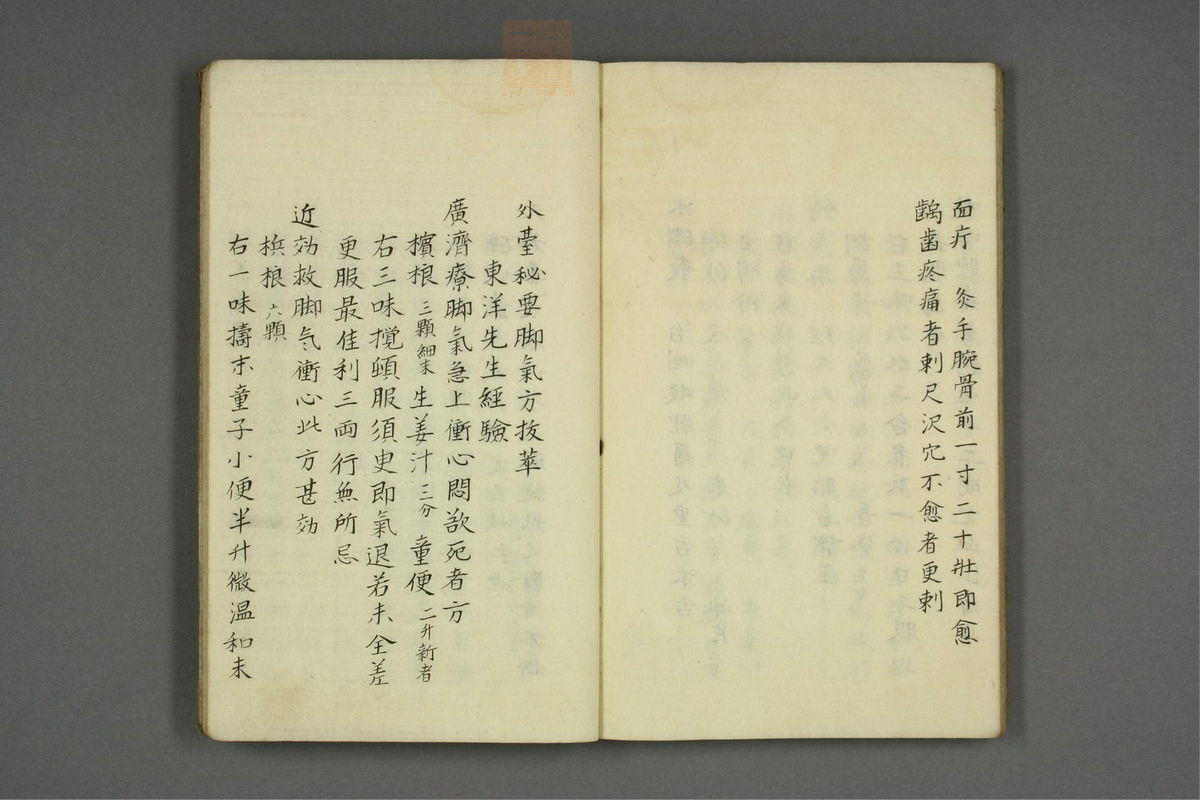 面疔　灸手腕骨前一寸二十壯即愈
齲齒疼痛者刺尺沢穴不愈者更刺
外臺秘要脚氣方抜萃
東洋先生經驗
廣濟療脚氣急上衝心悶欲死者方
檳榔三顆細末生姜汁三分童便二升新者
右三味攪頓服須臾即氣退若未全差
更服最佳利三両行無所忌
近効救脚气衝心此方甚効
梹榔六顆
右一味擣末童子小便半升微温和末